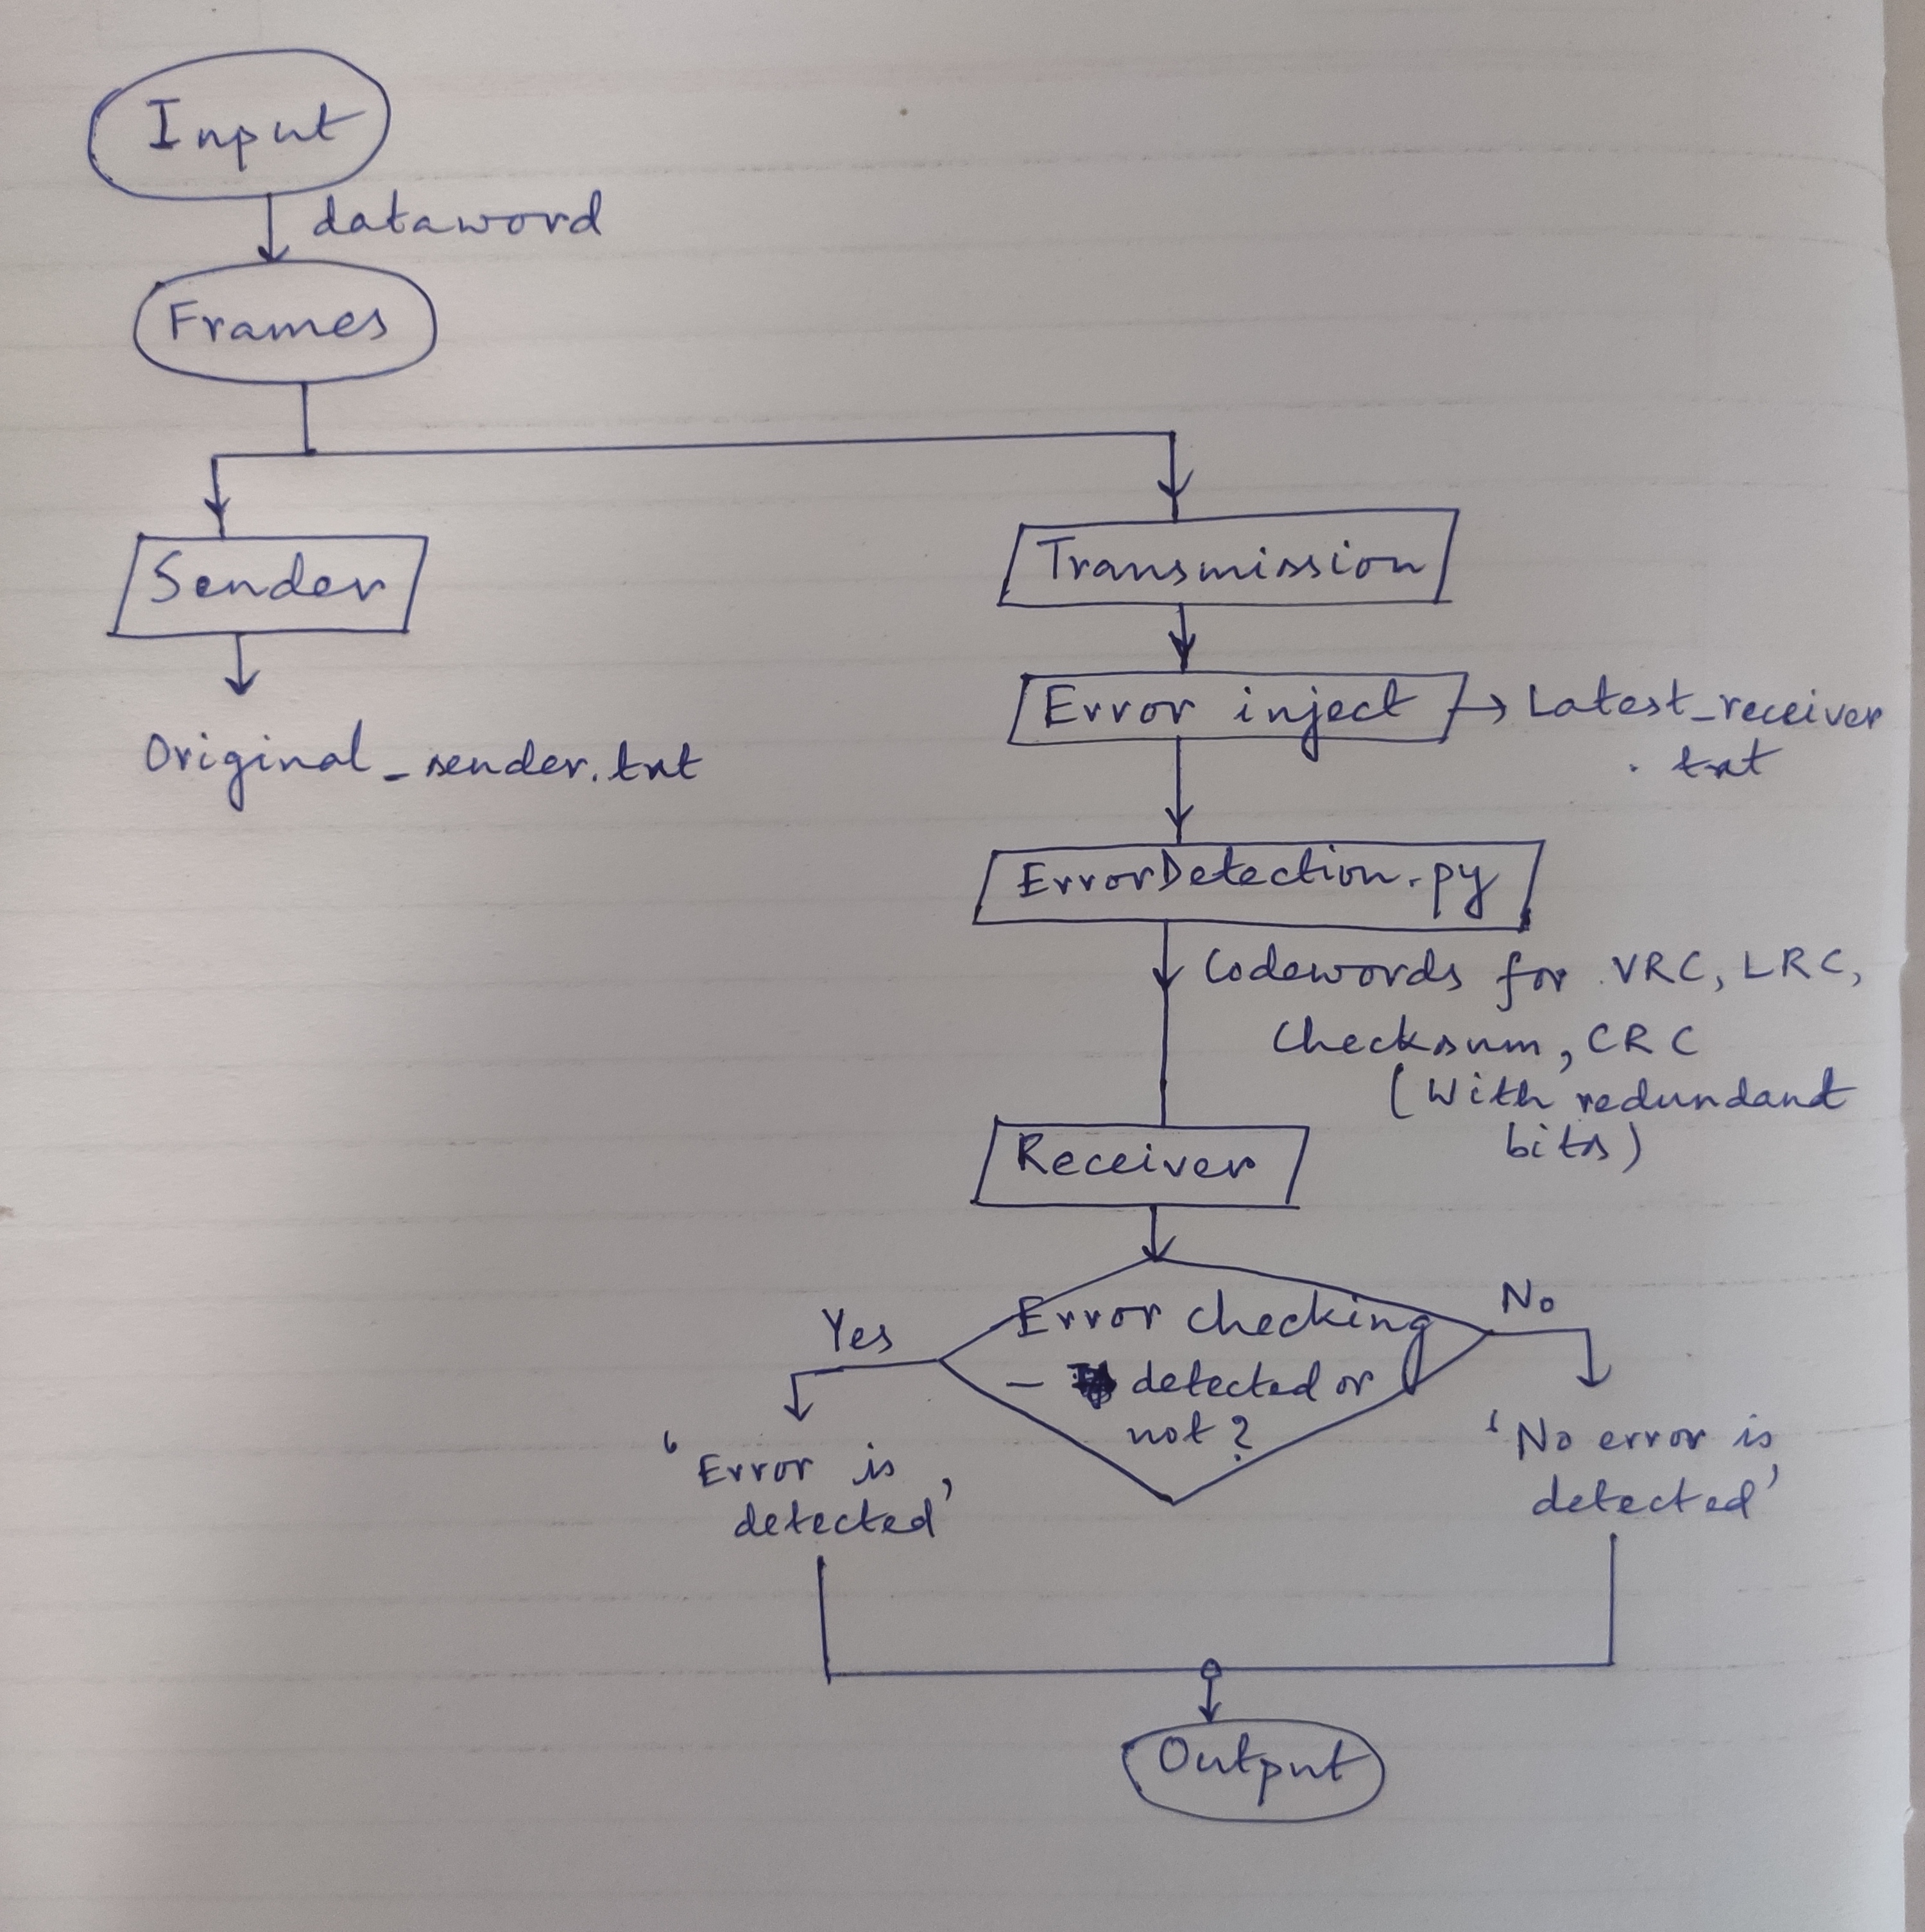 Input
dataword
Frames
Sender
Original_sender.txt
Transmission
Error inject
Latest_receiver
.txt
ErrorDetection.py
Codewords for VRC, LRC,
Checksum, CRC
(With redundant
bits)
Receiver
Error checking
- detected or
not?
Yes
'Error is
detected'
No
'No error is
detected'
Output